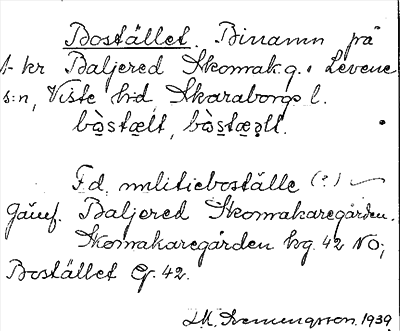 Bostället. Binamn på
1 kr Baljered Skomak.g. i Levene
s:n, Viste hd, Skaraborgs l.
bòstælt, bòstæəlt.
F.d. militieboställe (?)
Jämf. Baljered Skomakaregården.
Skomakaregården hg. 42 NO;
Bostället G. 42.
1939